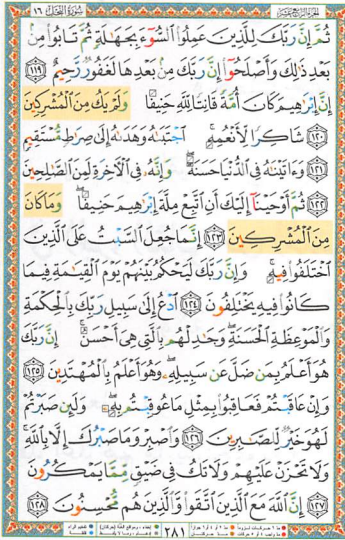 الجزء الرابع عشر سورة النحل ١٦
ثُمَّ إِنَّ رَبَّكَ لِلَّذِينَ عَمِلُوا۟ ٱلسُّوٓءَ بِجَهَـٰلَةٍ ثُمَّ تَابُوا۟ مِنۢ
بَعْدِ ذَٰلِكَ وَأَصْلَحُوٓا۟ إِنَّ رَبَّكَ مِنۢ بَعْدِهَا لَغَفُورٌ رَّحِيمٌ ١١٩
إِنَّ إِبْرَٰهِيمَ كَانَ أُمَّةً قَانِتًا لِّلَّهِ حَنِيفًا وَلَمْ يَكُ مِنَ ٱلْمُشْرِكِينَ
١٢٠ شَاكِرًا لِّأَنْعُمِهِ ۚ ٱجْتَبَىٰهُ وَهَدَىٰهُ إِلَىٰ صِرَٰطٍ مُّسْتَقِيمٍ
١٢١ وَءَاتَيْنَـٰهُ فِى ٱلدُّنْيَا حَسَنَةً ۖ وَإِنَّهُۥ فِى ٱلْـَٔاخِرَةِ لَمِنَ ٱلصَّـٰلِحِينَ
١٢٢ ثُمَّ أَوْحَيْنَآ إِلَيْكَ أَنِ ٱتَّبِعْ مِلَّةَ إِبْرَٰهِيمَ حَنِيفًا ۖ وَمَا كَانَ
مِنَ ٱلْمُشْرِكِينَ ١٢٣ إِنَّمَا جُعِلَ ٱلسَّبْتُ عَلَى ٱلَّذِينَ
ٱخْتَلَفُوا۟ فِيهِ ۚ وَإِنَّ رَبَّكَ لَيَحْكُمُ بَيْنَهُمْ يَوْمَ ٱلْقِيَـٰمَةِ فِيمَا
كَانُوا۟ فِيهِ يَخْتَلِفُونَ ١٢٤ ٱدْعُ إِلَىٰ سَبِيلِ رَبِّكَ بِٱلْحِكْمَةِ
وَٱلْمَوْعِظَةِ ٱلْحَسَنَةِ ۖ وَجَـٰدِلْهُم بِٱلَّتِى هِىَ أَحْسَنُ ۚ إِنَّ رَبَّكَ
هُوَ أَعْلَمُ بِمَن ضَلَّ عَن سَبِيلِهِۦ ۖ وَهُوَ أَعْلَمُ بِٱلْمُهْتَدِينَ ١٢٥
وَإِنْ عَاقَبْتُمْ فَعَاقِبُوا۟ بِمِثْلِ مَا عُوقِبْتُم بِهِۦ ۖ وَلَئِن صَبَرْتُمْ
لَهُوَ خَيْرٌ لِّلصَّـٰبِرِينَ ١٢٦ وَٱصْبِرْ وَمَا صَبْرُكَ إِلَّا بِٱللَّهِ ۚ
وَلَا تَحْزَنْ عَلَيْهِمْ وَلَا تَكُ فِى ضَيْقٍ مِّمَّا يَمْكُرُونَ
١٢٧ إِنَّ ٱللَّهَ مَعَ ٱلَّذِينَ ٱتَّقَوا۟ وَّٱلَّذِينَ هُم مُّحْسِنُونَ ١٢٨
٢٨١